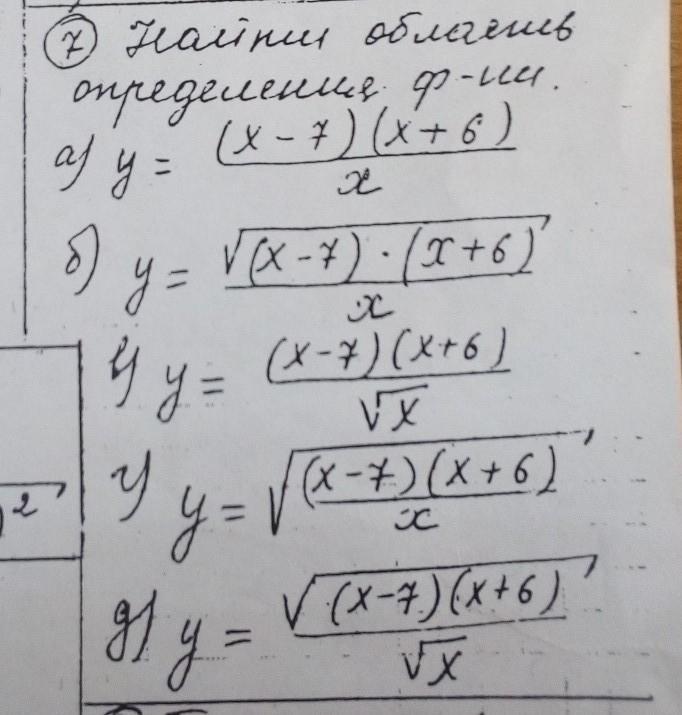 ⑦ Найти область
определения ф-ии.
а) y = (x - 7)(x + 6) / x
б) y = √((x - 7) · (x + 6)) / x
в) y = (x - 7)(x + 6) / √x
г) y = √((x - 7)(x + 6) / x)
д) y = √((x - 7)(x + 6)) / √x
)²